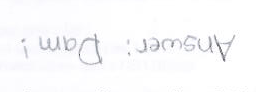 Answer: Dam!